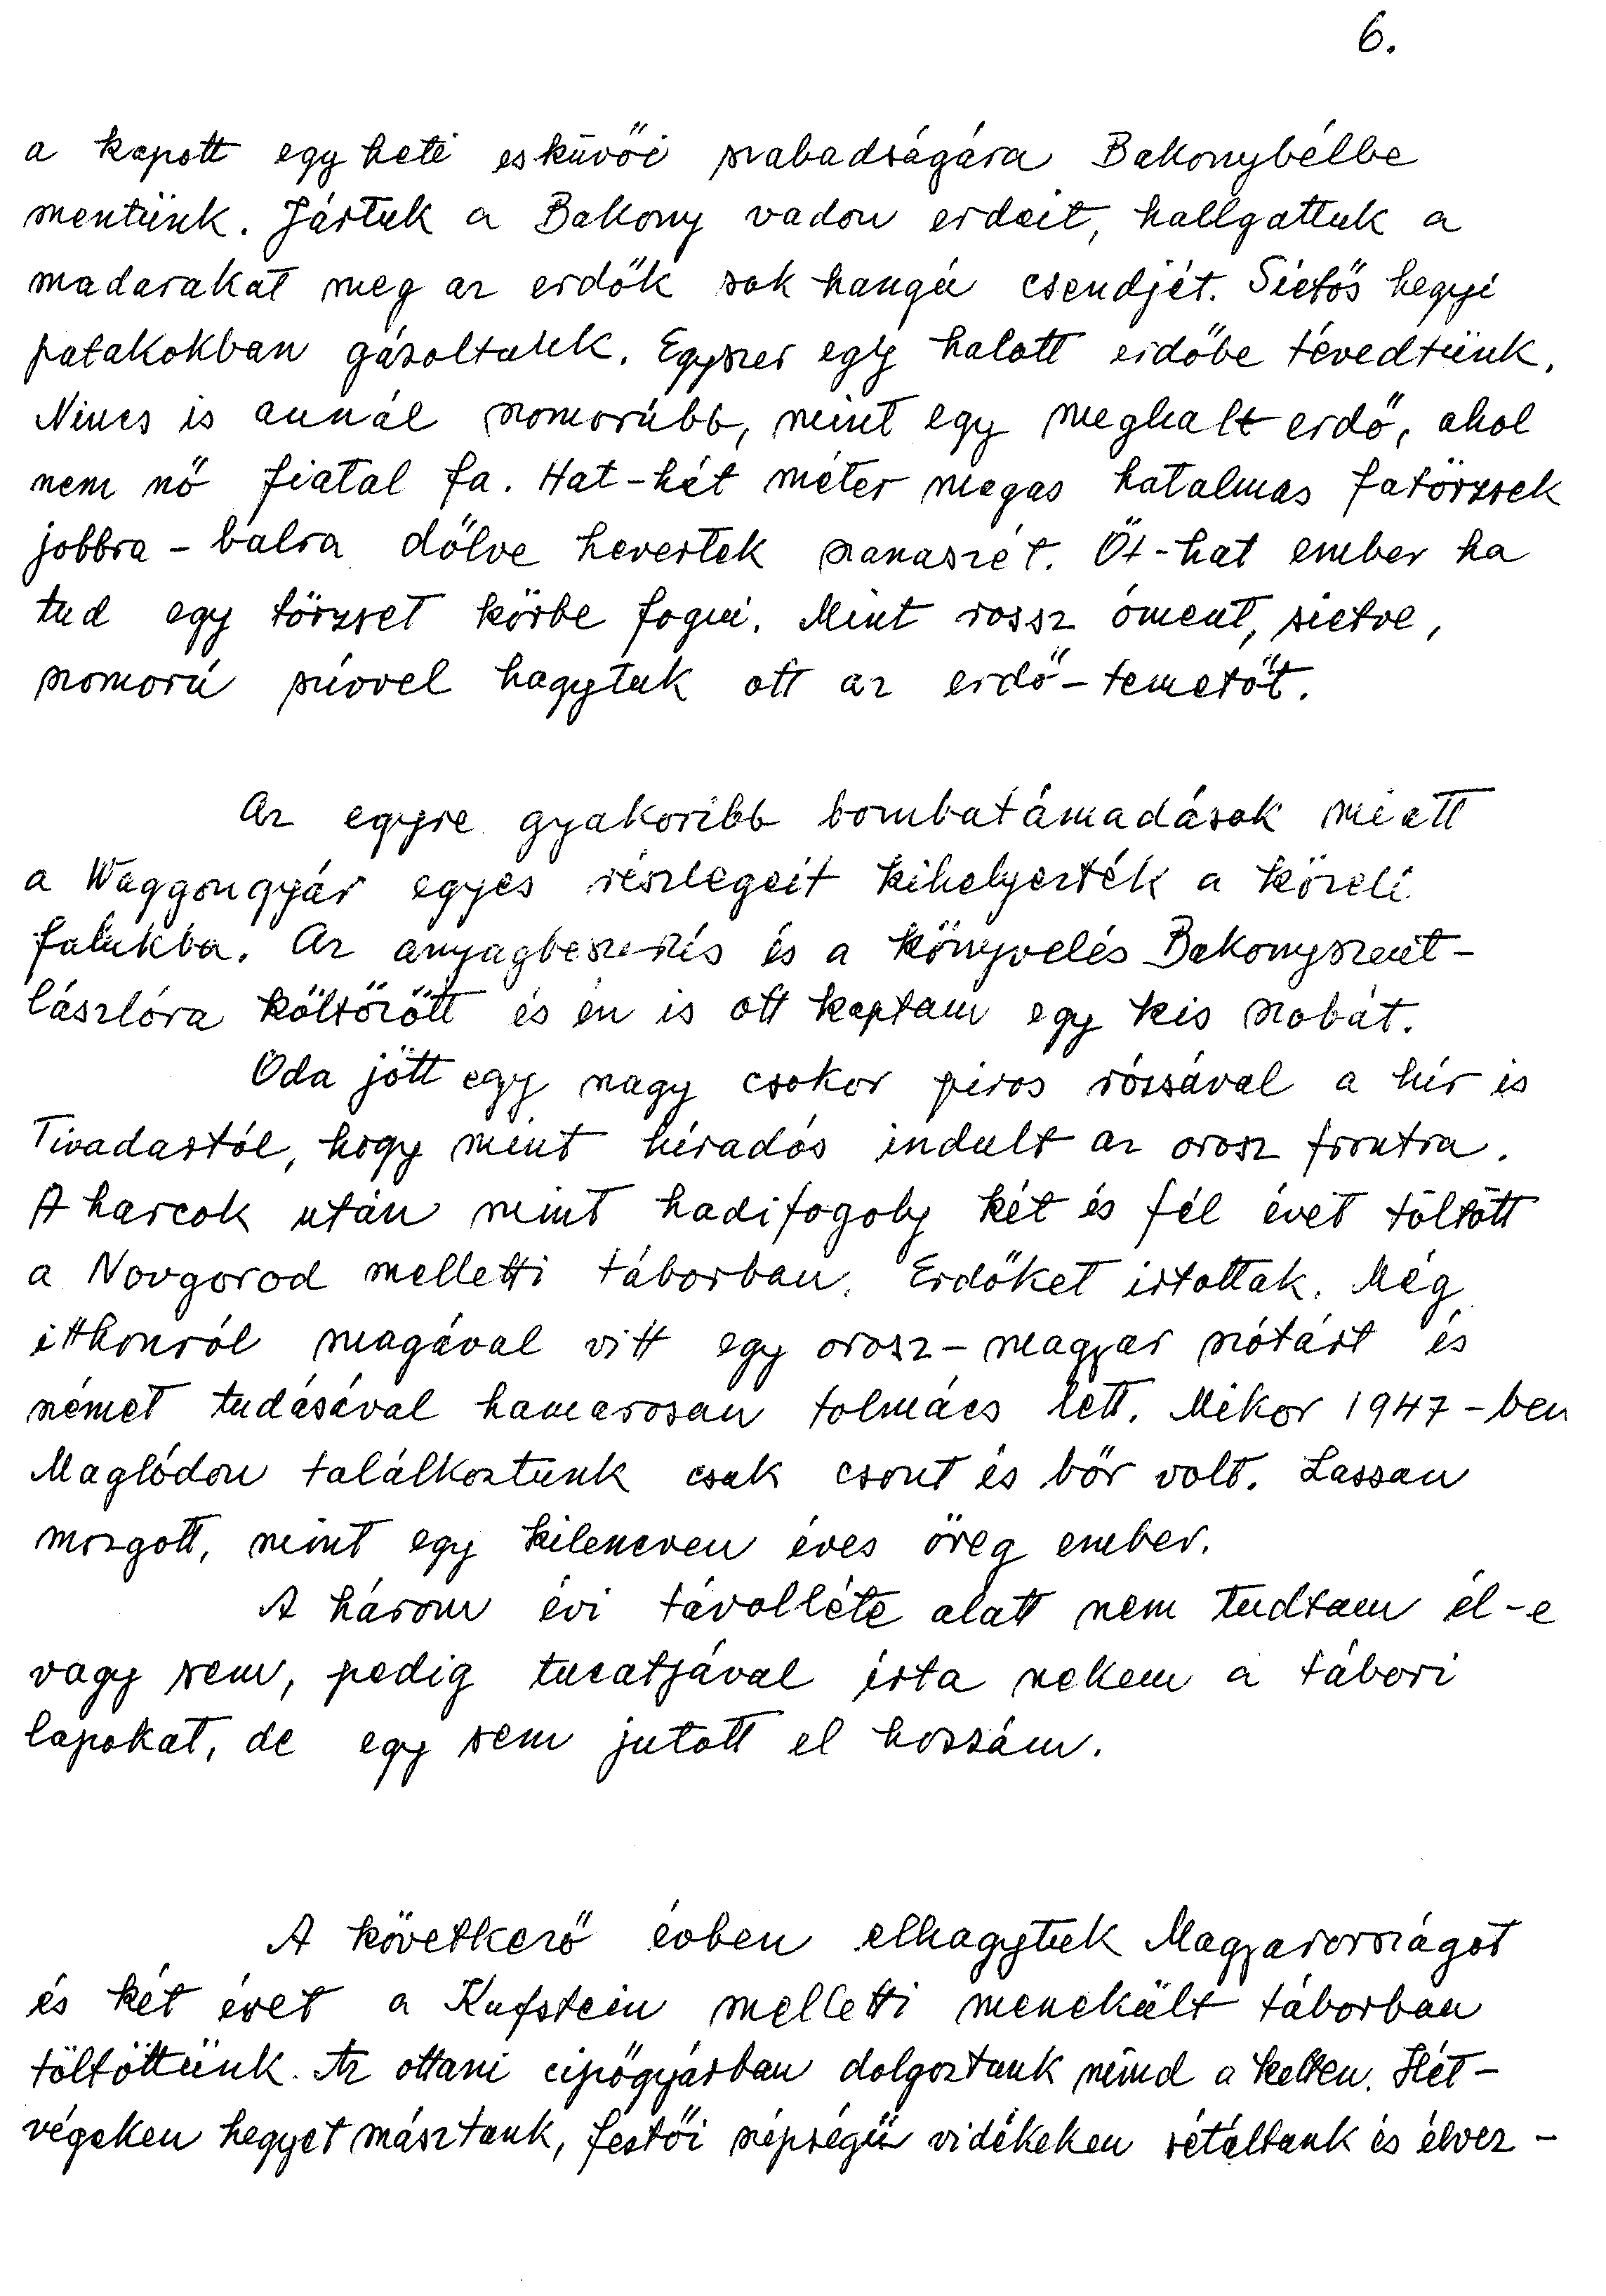 6.
a kapott egy heti esküvői szabadságára Bakonybélbe
mentünk. Jártuk a Bakony vadon erdeit, hallgattuk a
madarakat meg az erdők sok hangú csendjét. Siető's hegyi
patakokban gázoltunk. Egyszer egy halott erdőbe tévedtünk.
Nincs is annál szomorúbb, mint egy meghalt erdő, ahol
nem nő fiatal fa. Hat-hét méter magas hatalmas fatörzsek
jobbra-balra dőlve hevertek szanaszét. Öt-hat ember ha
tud egy törzset körbe fogni. Mint rossz óment, sietve,
szomorú szívvel hagytuk ott az erdő-temetőt.
Az egyre gyakoribb bombatámadások miatt
a Waggongyár egyes részlegeit kihelyezték a közeli
falukba. Az anyagbeszerzés és a könyvelés Bakonyszent-
lászlóra költözött és én is ott kaptam egy kis szobát.
Oda jött egy nagy csokor piros rózsával a hír is
Tivadartól, hogy mint híradós indult az orosz frontra.
A harcok után mint hadifogoly két és fél évet töltött
a Novgorod melletti táborban. Erdőket irtottak. Még
itthonról magával vitt egy orosz-magyar szótárt és
német tudásával hamarosan tolmács lett. Mikor 1947-ben
Maglódon találkoztunk csak csont és bőr volt. Lassan
mozgott, mint egy kilencven éves öreg ember.
A három évi távolléte alatt nem tudtam él-e
vagy sem, pedig tucatjával írta nekem a tábori
lapokat, de egy sem jutott el hozzám.
A következő évben elhagytuk Magyarországot
és két évet a Kufstein melletti menekült táborban
töltöttünk. Az ottani cipőgyárban dolgoztunk mind a ketten. Hét-
végeken hegyet másztunk, festői szépségű vidékeken sétáltunk és élvez-